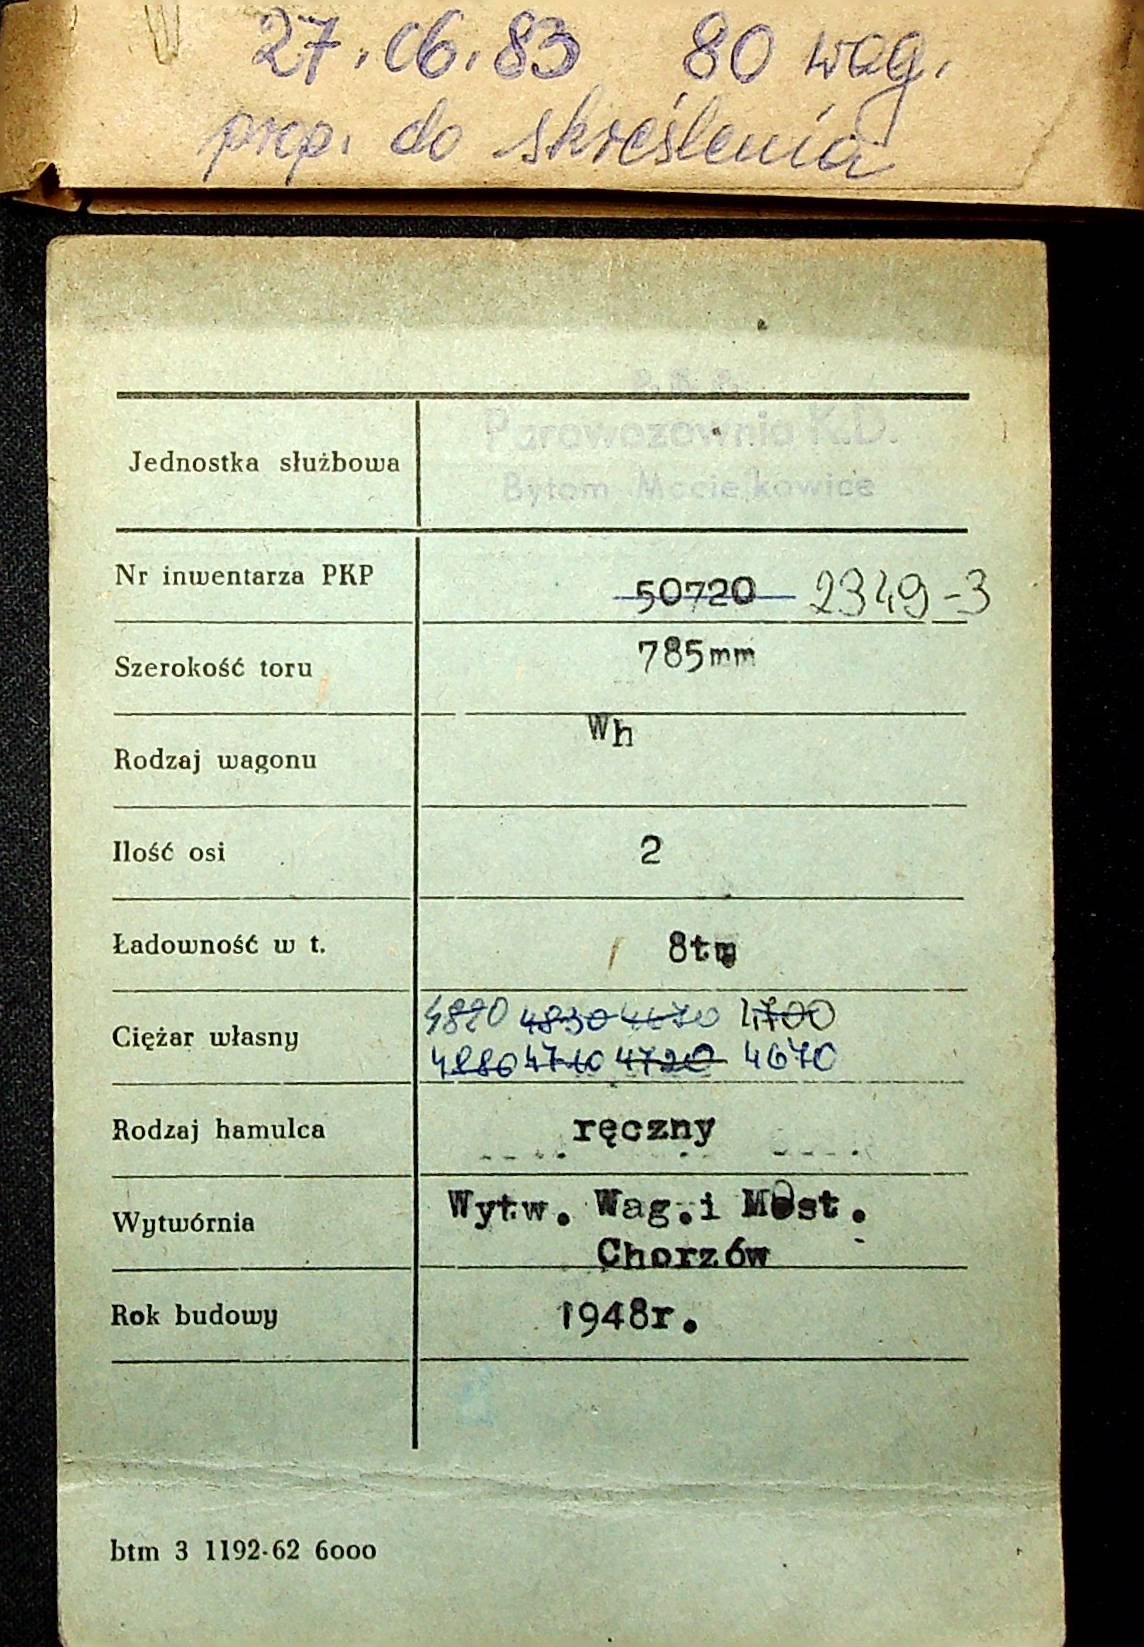 27.06.83 80 wag.
prop. do skreślenia
P.K.P.
Parowozownia K.D.
Bytom Maciejkowice
Jednostka służbowa
Nr inwentarza PKP 50720 2349-3
Szerokość toru 785mm
Rodzaj wagonu Wh
Ilość osi 2
Ładowność w t. 8tn
Ciężar własny 4820 4830 4670 4700
4880 4710 4720 4670
Rodzaj hamulca ręczny
Wytwórnia Wytw. Wag.i Most.
Chorzów
Rok budowy 1948r.
btm 3 1192-62 6000